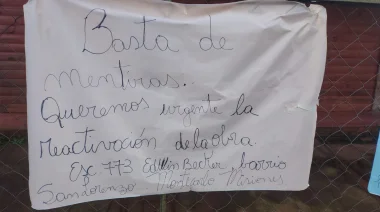 Basta de
mentiras..
Queremos urgente la
reactivación de la obra.
Esc 773 Edwin Becker barrio
San Lorenzo Montecarlo Misiones